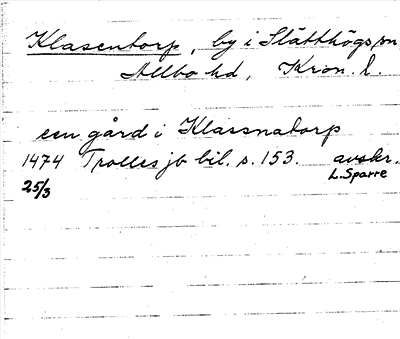 Klasentorp, by i Slätthögs sn
Allbo hd, Kron. l.
een gård i Klassnatorp
1474 Trolles jb bil. s. 153. avskr.
25/3 L. Sparre